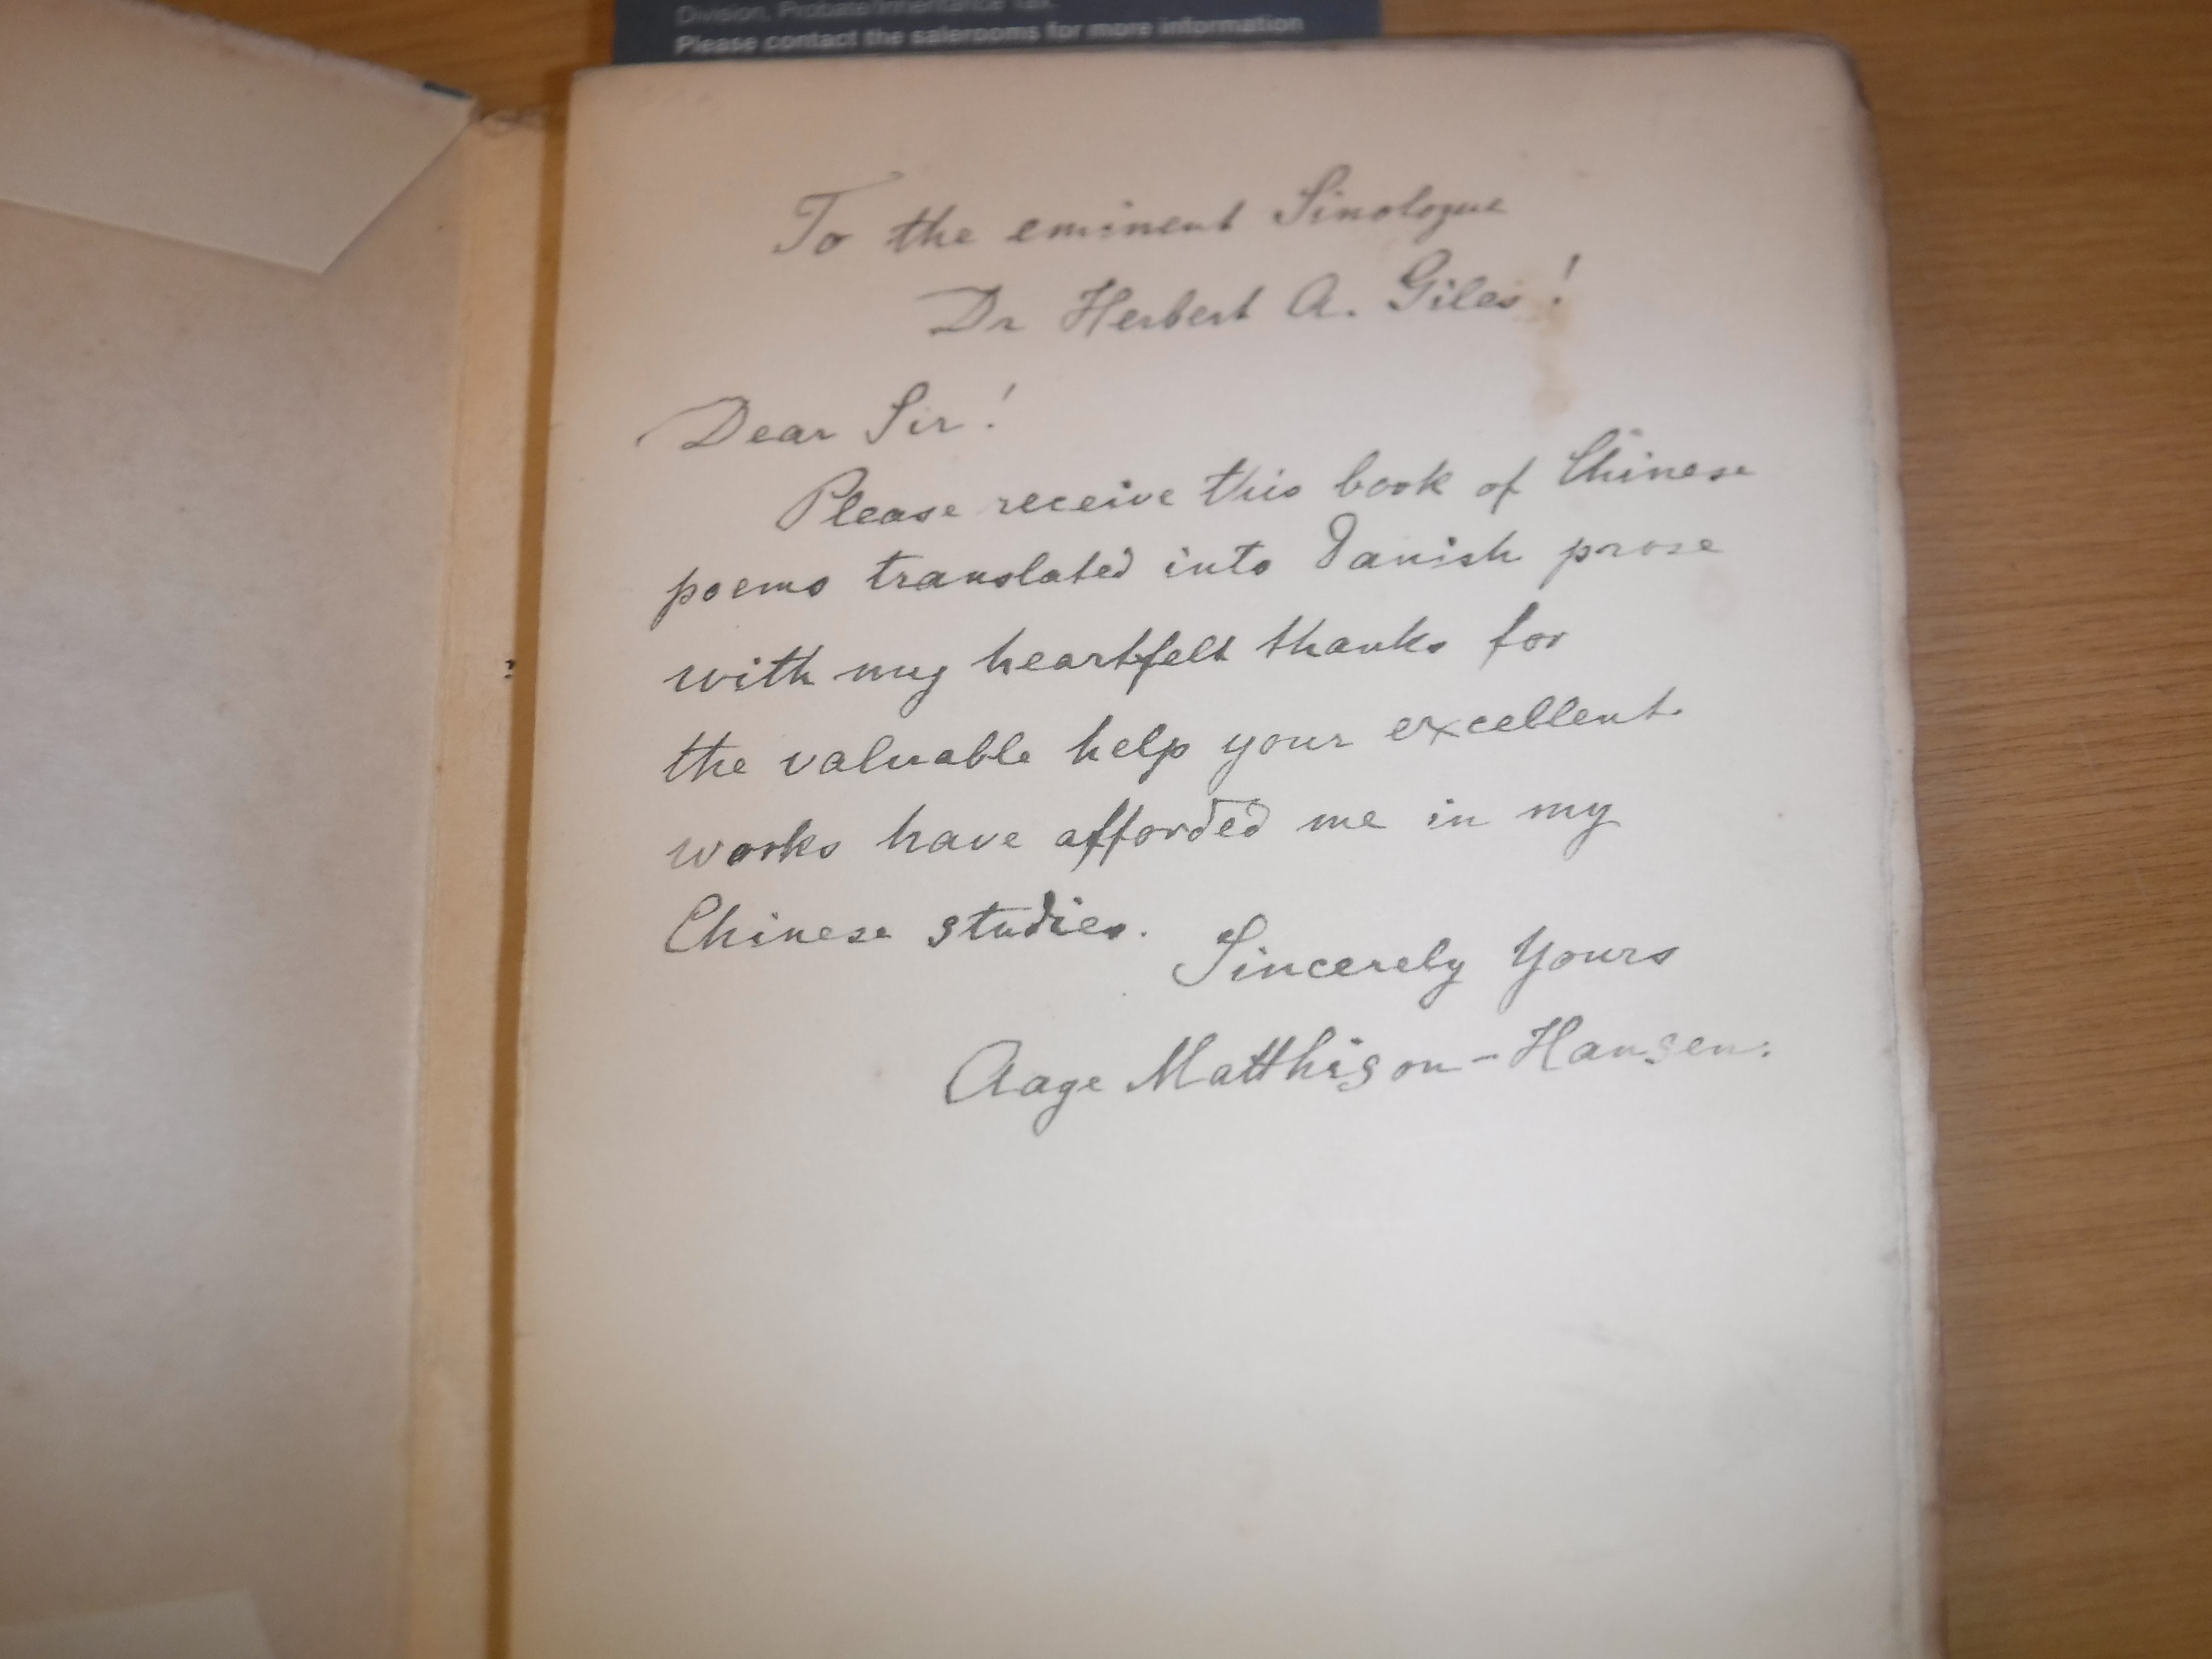 Division, Probate/Inheritance Tax.
Please contact the salerooms for more information
To the eminent Sinologue
Dr Herbert A. Giles!
Dear Sir!
Please receive this book of Chinese
poems translated into Danish prose
with my heartfelt thanks for
the valuable help your excellent
works have afforded me in my
Chinese studies.
Sincerely Yours
Aage Matthison-Hansen.